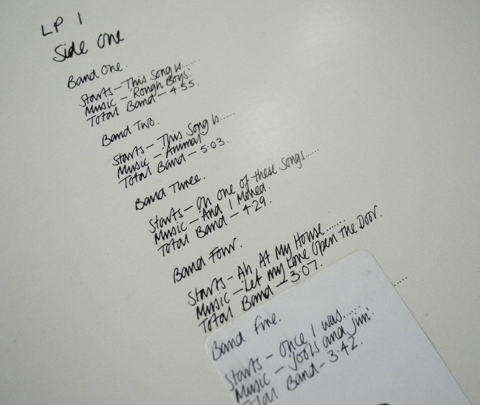 LP 1
Side One
Band One.
Starts - This Song is......
Music - Rough Boys.
Total Band - 4.55.
Band Two.
Starts - This Song is......
Music - Animal
Total Band - 5.03.
Band Three.
Starts - On one of these Songs.....
Music - And I Moved.
Total Band - 4.29.
Band Four.
Starts - Ah At My House......
Music - Let my Love Open The Door.
Total Band - 3.07.
Band Five.
Starts - Once I was..........
Music - Jools and Jim.
Total Band - 3.42.